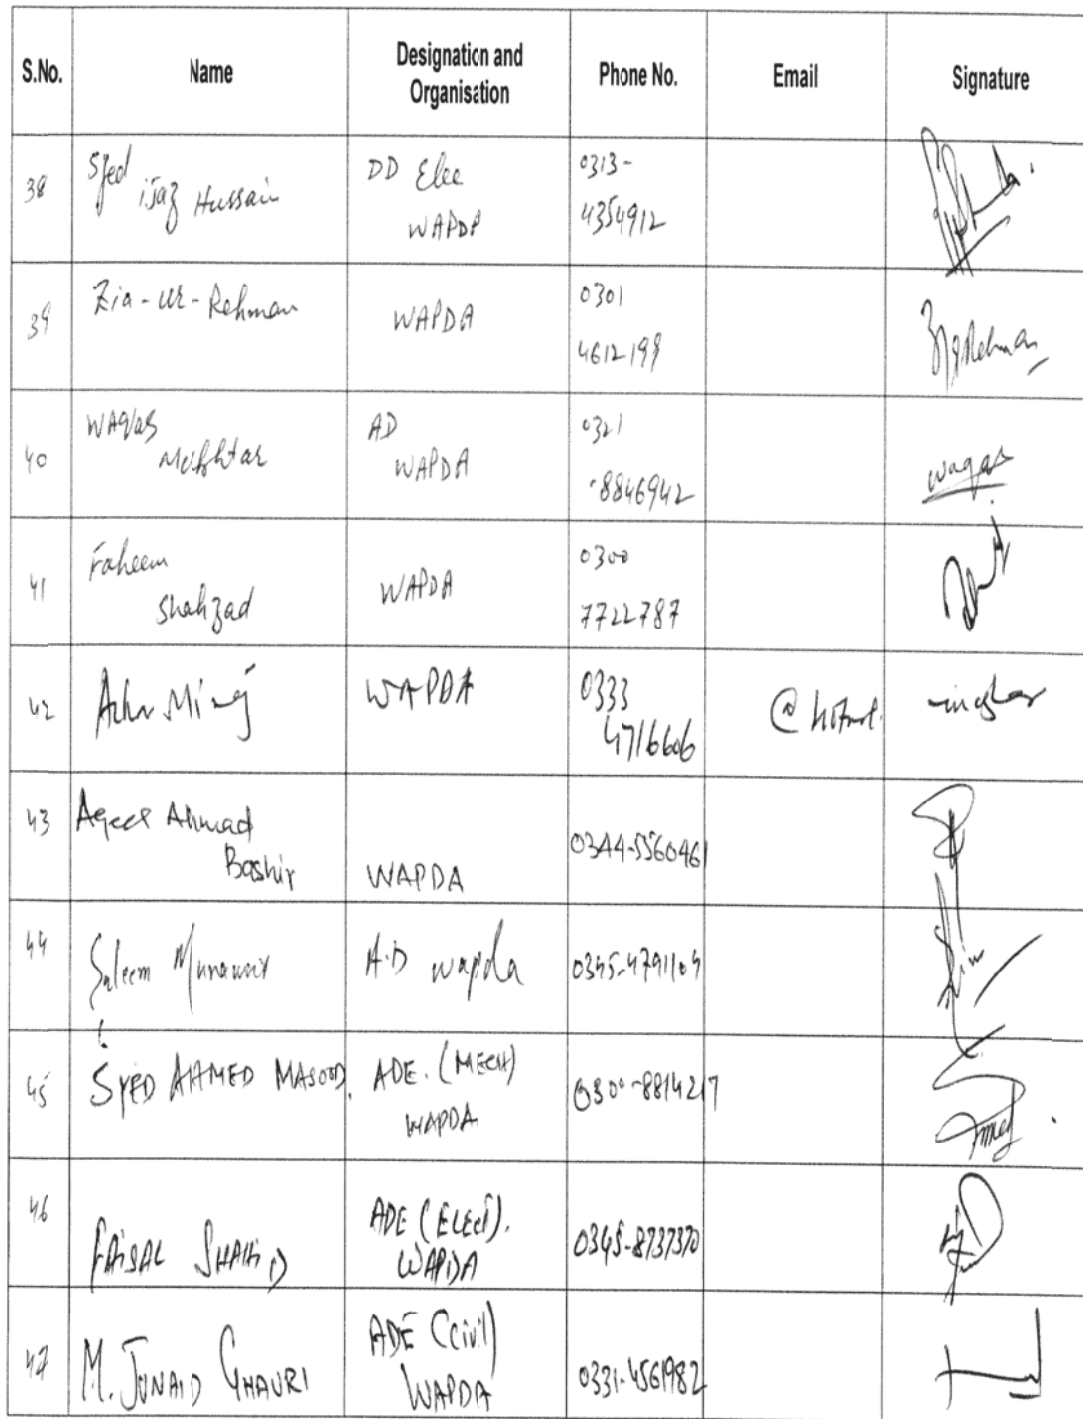 S.No. Name Designation and Organisation Phone No. Email Signature
38 Syed ijaz Hussain DD Elec WAPDA 0313-4354912
39 Zia-ur-Rehman WAPDA 0301 4612199
40 WAQAS Mukhtar AD WAPDA 0321-8846942 waqas
41 Faheem Shahzad WAPDA 0300 7722787
42 WAPDA 0333 4716606
43 Aqeel Ahmad Bashir WAPDA 0344-5560461
44 Saleem Munawar A.D wapda 0345-4791104
45 SYED AHMED MASOOD. ADE. (MECH) WAPDA 0300-8814217
46 FAISAL SHAHID ADE (ELECT). WAPDA 0345-8737370
47 M. JUNAID GHAURI ADE (civil) WAPDA 0331-4561982